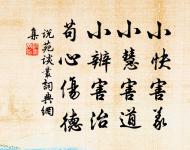 小快害義
小慧害道
小辨害治
苟心傷德
說苑談叢詞典網
集